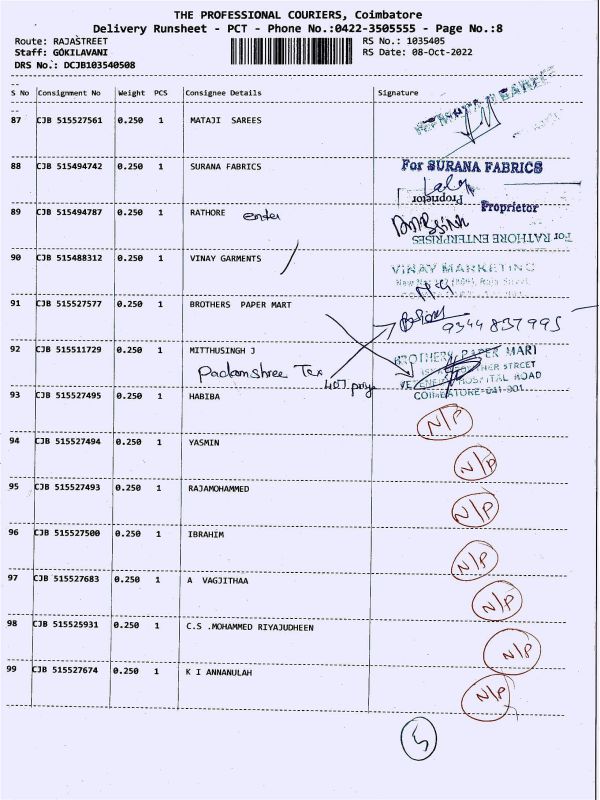 THE PROFESSIONAL COURIERS, Coimbatore
Delivery Runsheet - PCT - Phone No.:0422-3505555 - Page No.:8
Route: RAJASTREET RS No.: 1035405
Staff: GOKILAVANI RS Date: 08-Oct-2022
DRS No.: DCJB103540508
S No Consignment No Weight PCS Consignee Details Signature
87 CJB 515527561 0.250 1 MATAJI SAREES
88 CJB 515494742 0.250 1 SURANA FABRICS For SURANA FABRICS
Proprietor
Proprietor
89 CJB 515494787 0.250 1 RATHORE enter
For RATHORE ENTERPRISES
90 CJB 515488312 0.250 1 VINAY GARMENTS VINAY MARKETING
91 CJB 515527577 0.250 1 BROTHERS PAPER MART
9344837995
92 CJB 515511729 0.250 1 MITTHUSINGH J BROTHERS PAPER MART
Padamshree Tex
HOSPITAL ROAD
93 CJB 515527495 0.250 1 HABIBA N/P
94 CJB 515527494 0.250 1 YASMIN N/P
95 CJB 515527493 0.250 1 RAJAMOHAMMED N/P
96 CJB 515527500 0.250 1 IBRAHIM N/P
97 CJB 515527683 0.250 1 A VAGJITHAA N/P
98 CJB 515525931 0.250 1 C.S .MOHAMMED RIYAJUDHEEN N/P
99 CJB 515527674 0.250 1 K I ANNANULAH N/P
5